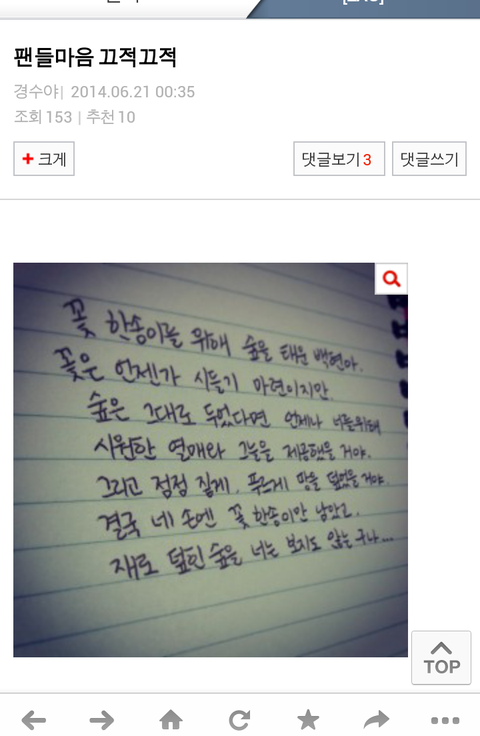 팬들마음 끄적끄적
경수야| 2014.06.21 00:35
조회 153 | 추천 10
+ 크게
댓글보기 3
댓글쓰기
꽃 한송이를 위해 숲을 태운 백현아.
꽃은 언젠가 시들기 마련이지만
숲은 그대로 두었다면 언제나 너를위해
시원한 열매와 그늘을 제공했을 거야.
그리고 점점 짙게, 푸르게 땅을 덮었을 거야.
결국 네 손엔 꽃 한송이만 남았고.
재로 덮힌 숲을 너는 보지도 않는구나...
TOP